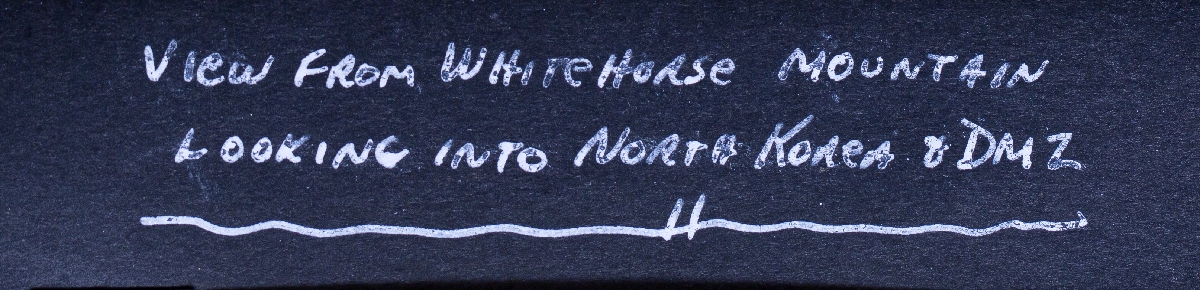 VIEW FROM WHITEHORSE MOUNTAIN
LOOKING INTO NORTH KOREA & DMZ